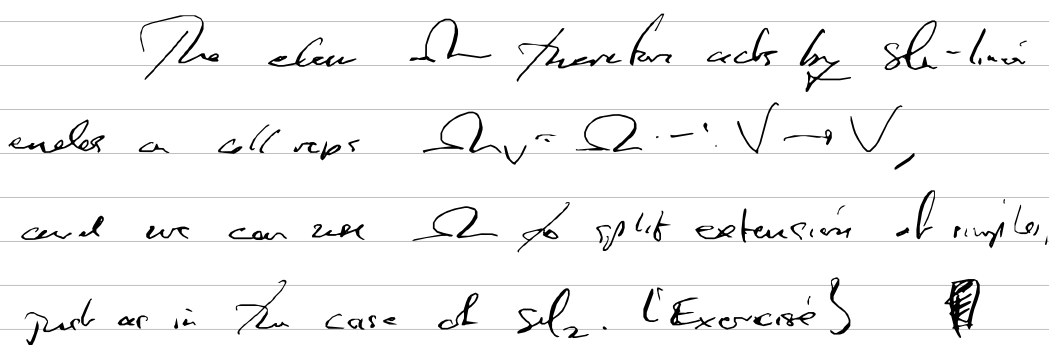 The elem Ω therefore acts by sln-linear
endos on all reps Ω_V = Ω·-: V → V,
and we can use Ω to split extensions of simples,
just as in the case of sl₂. (Exercise)